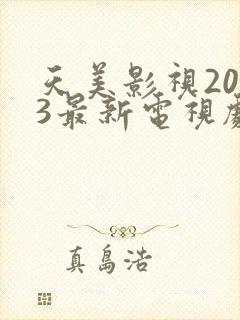 天美影視20
3最新電視劇
真島浩